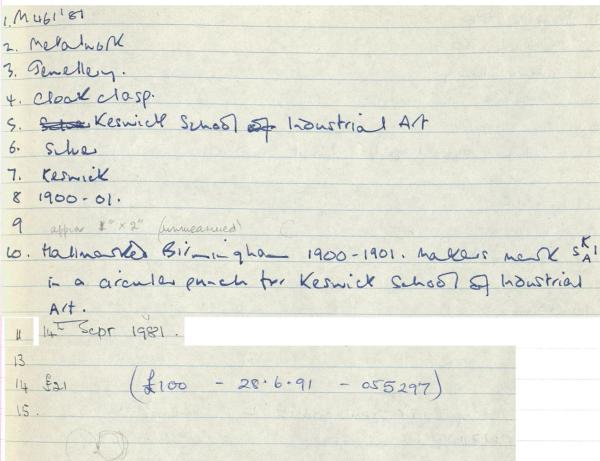 1. M461'81
2. Metalwork
3. Jewellery.
4. Cloak clasp.
5. Keswick School of Industrial Art
6. Silver
7. Keswick
8 1900-01.
9 approx 1" x 2" (unmeasured)
10. Hallmarked Birmingham 1900-1901. Makers mark S K I A
in a circular punch for Keswick School of Industrial
Art.
11 14th Sept 1981.
13
14 £21 (£100 - 28.6.91 - 055297)
15.